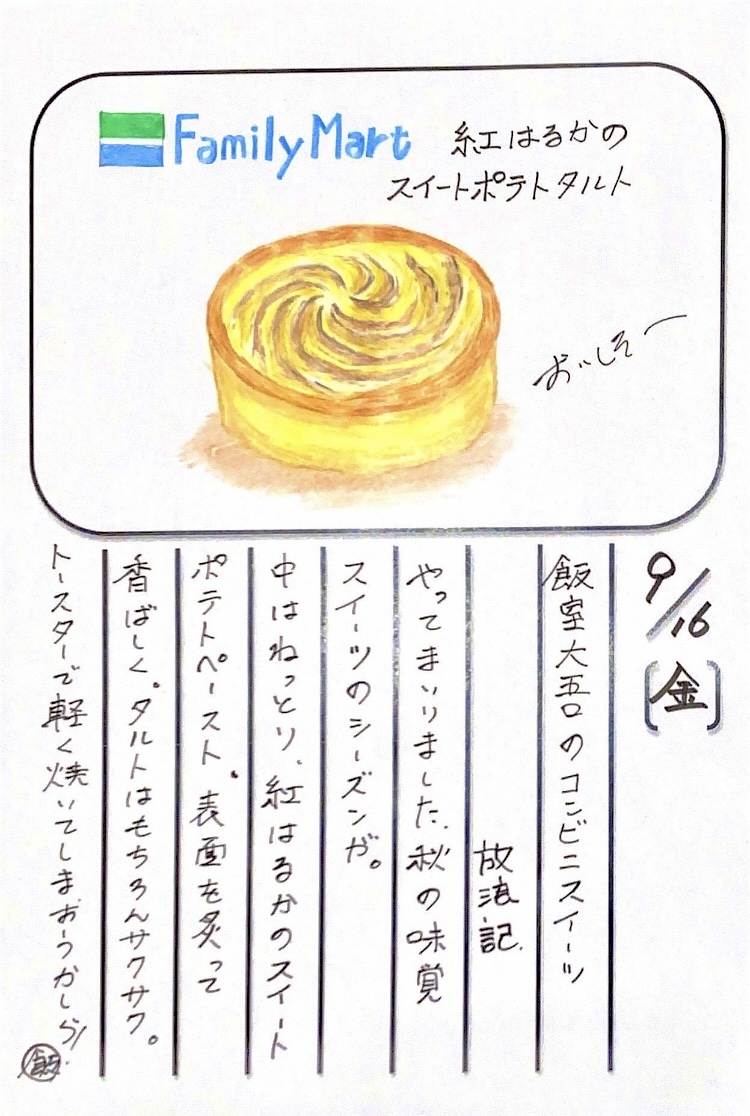 FamilyMart
紅はるかの
スイートポテトタルト
おいしそー
9/16
[金]
飯室大吾のコンビニスイーツ
放浪記
やってまいりました、秋の味覚
スイーツのシーズンが。
中はねっとり、紅はるかのスイート
ポテトペースト。表面を炙って
香ばしく。タルトはもちろんサクサク。
トースターで軽く焼いてしまおうかしら!
飯